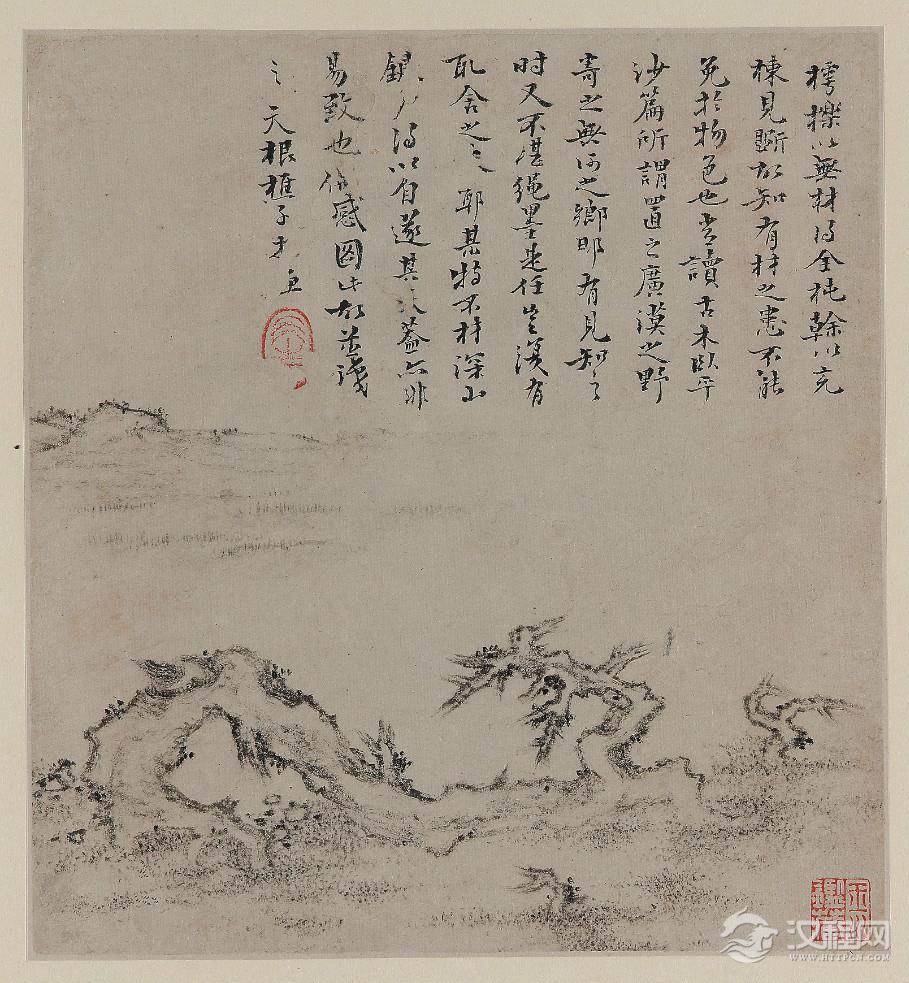 樗櫟以無材得全杶榦以充
棟見斵故知有材之患不能
免於物色也嘗讀古木臥平
沙篇所謂置之廣漠之野
寄之無何之鄉耶有見知之
时又不堪繩墨是任豈復有
取舍之之耶某特不材深山
得以自遂其之蓋亦非
易致也偶感圖此故並識
之天根樵子
汉程网
WWW.HTTPCN.COM